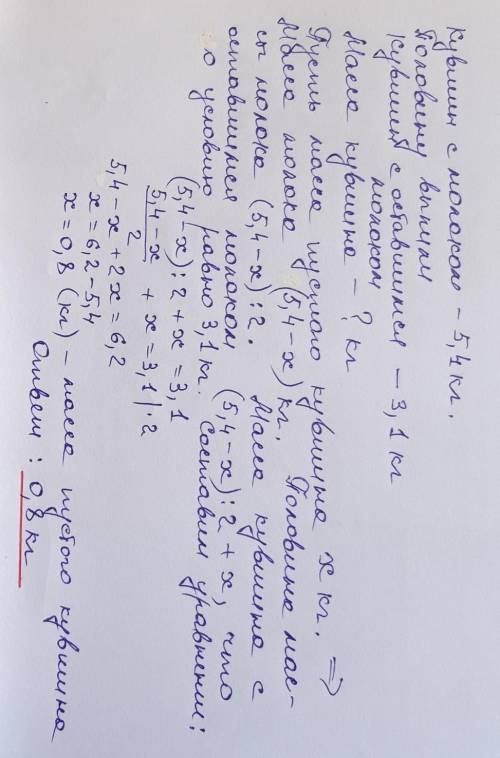 Кувшин с молоком – 5,4 кг.
Половину выпили
Кувшин с оставшимся – 3,1 кг
молоком
Масса кувшина – ? кг
Пусть масса пустого кувшина x кг. ⇒
Масса молока (5,4-x) кг. Половина мас-
сы молока (5,4-x):2. Масса кувшина с
оставшимся молоком (5,4-x):2+x, что
по условию равно 3,1 кг. Составим уравнение:
(5,4-x):2+x=3,1
5,4-x/2 + x = 3,1 |·2
5,4-x+2x=6,2
x=6,2-5,4
x=0,8 (кг) – масса пустого кувшина
Ответ: 0,8 кг